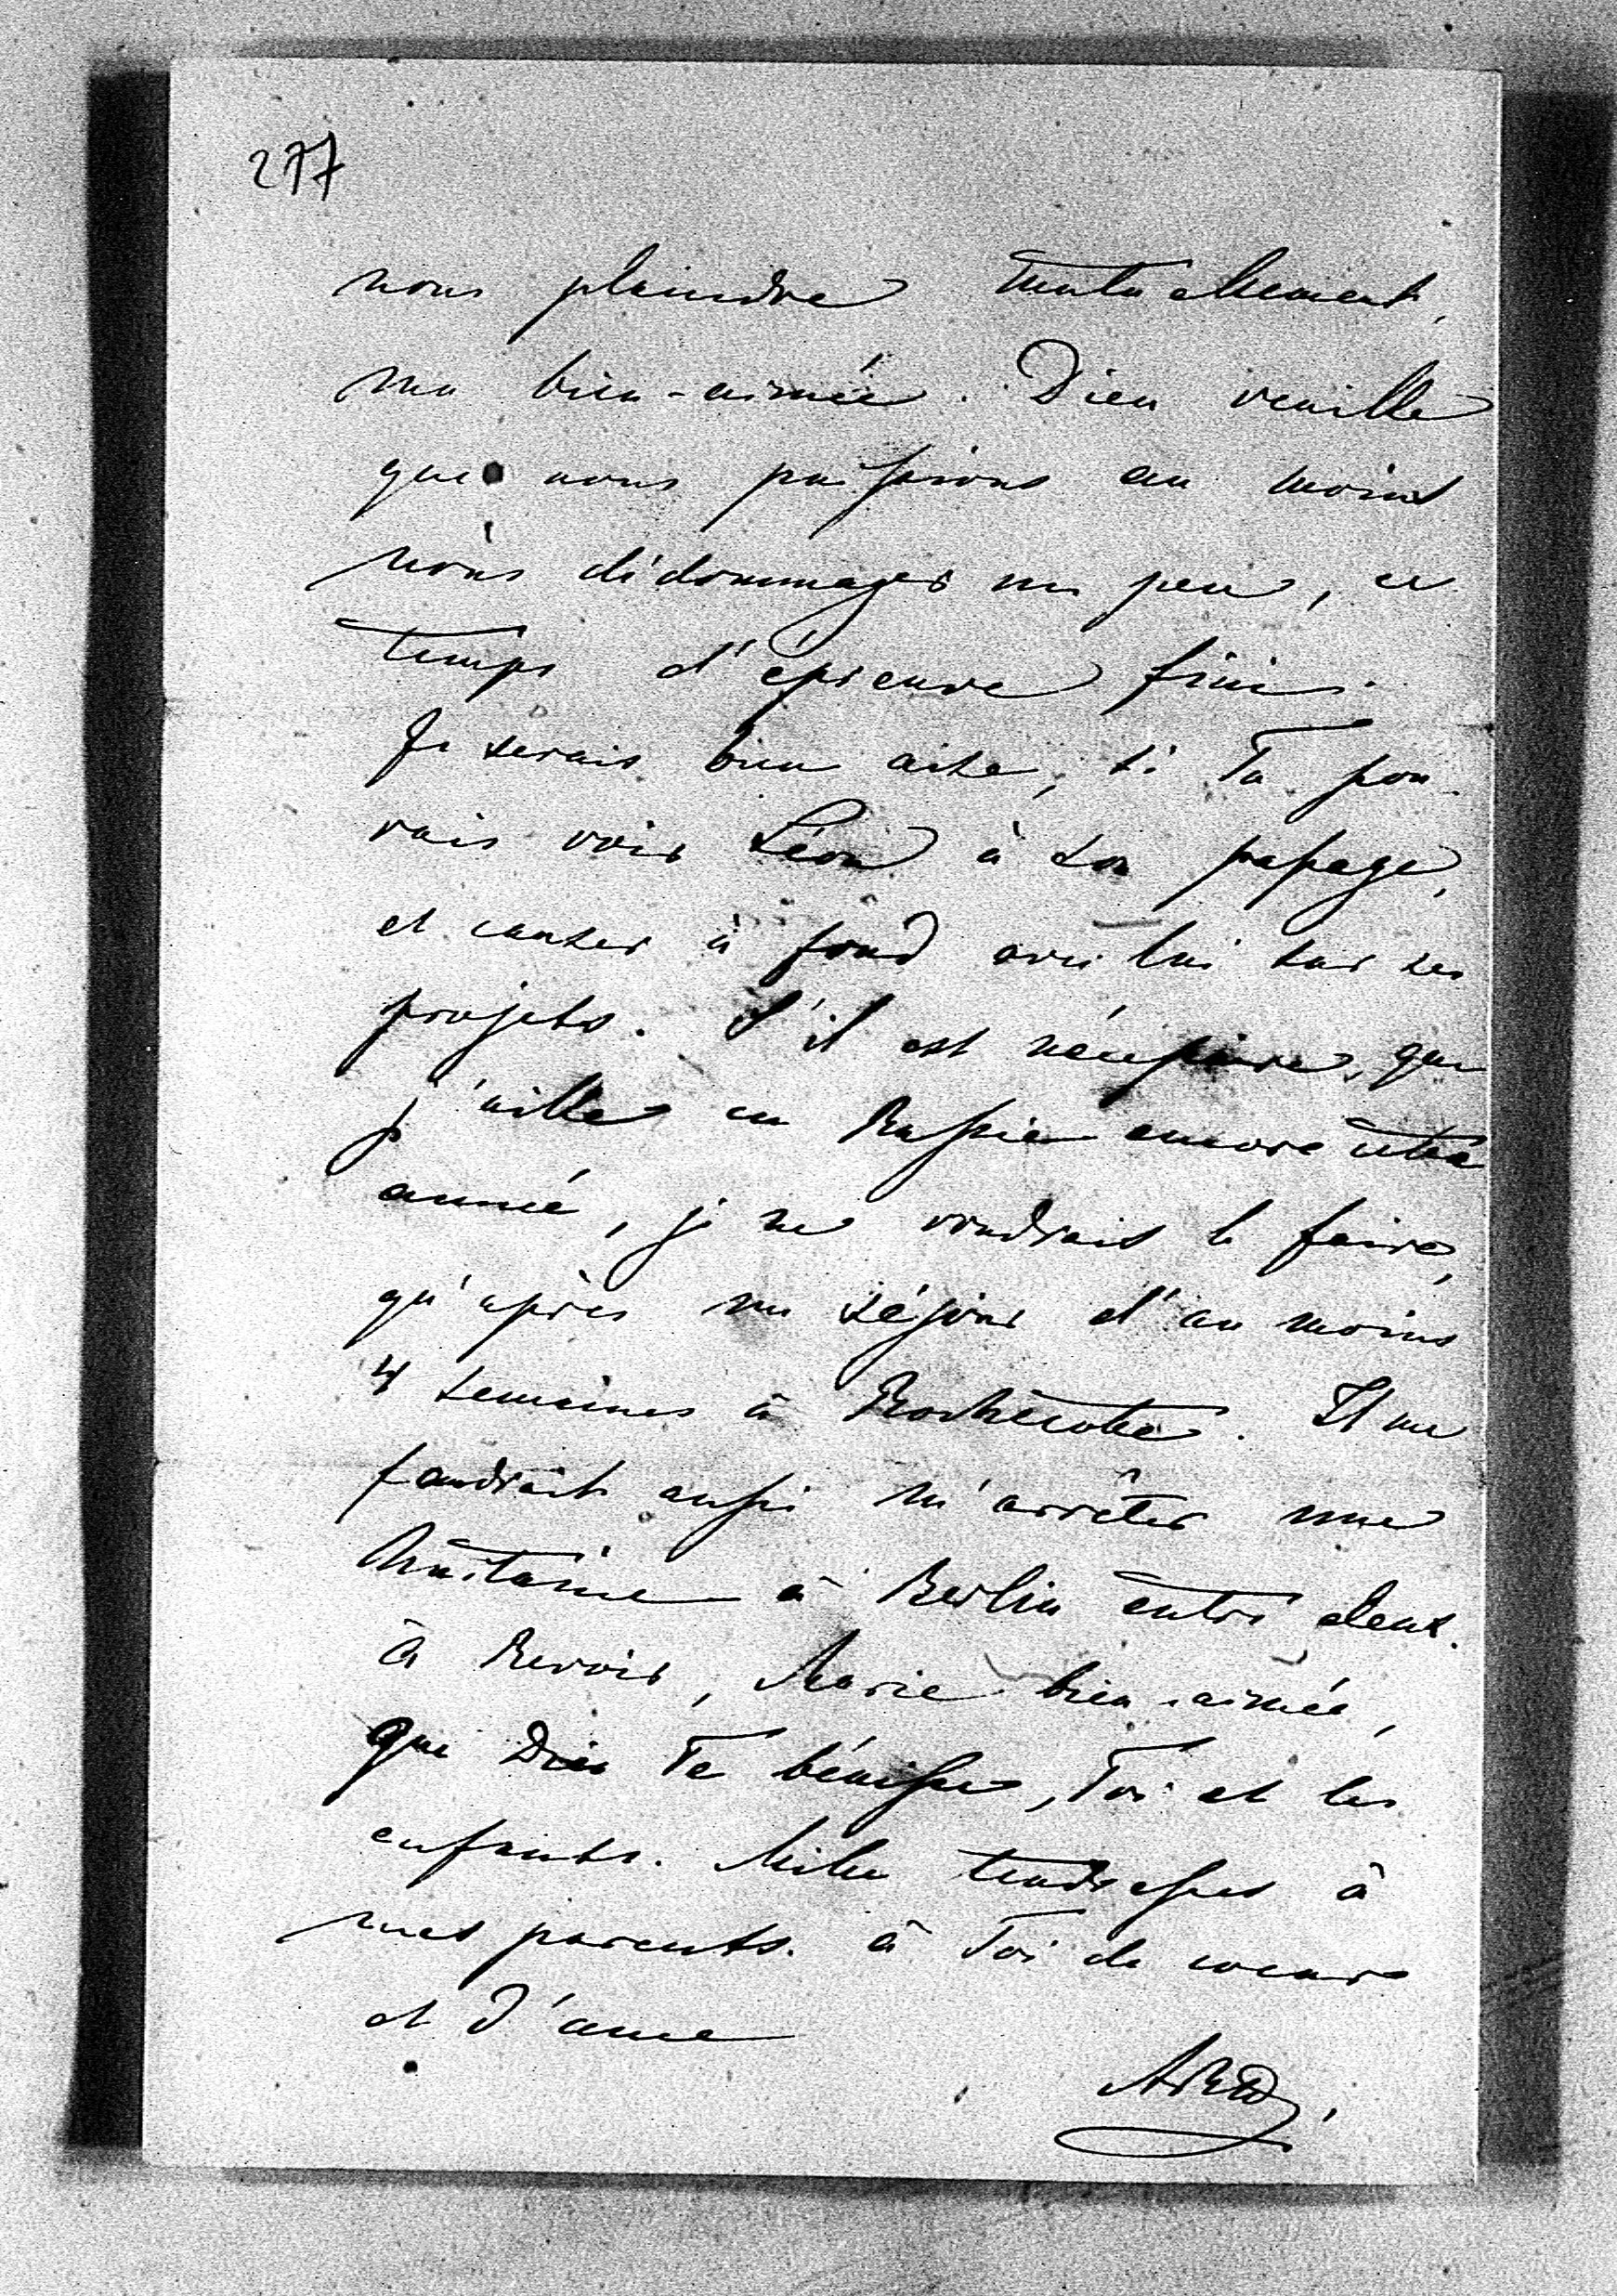 277
nous plaindre mutuellement,
ma bien-aimée. Dieu veuille
que nous puissions au moins
nous dédommager un peu, ce
temps d'épreuve fini.
Je serais bien aise, si Tu pou-
vais voir Léon à son passage,
et causer à fond avec lui sur ses
projets. S'il est nécessaire, que
j'aille en Russie encore cette
année, je ne voudrais le faire,
qu'après un séjour d'au moins
4 semaines à Rochecotte. Il me
faudrait aussi m'arrêter une
huitaine à Berlin entre deux.
à Revoir, Marie bien-aimée,
que Dieu Te bénisse, Toi et les
enfants. Mille tendresses à
mes parents. à Toi de coeur
et d'âme